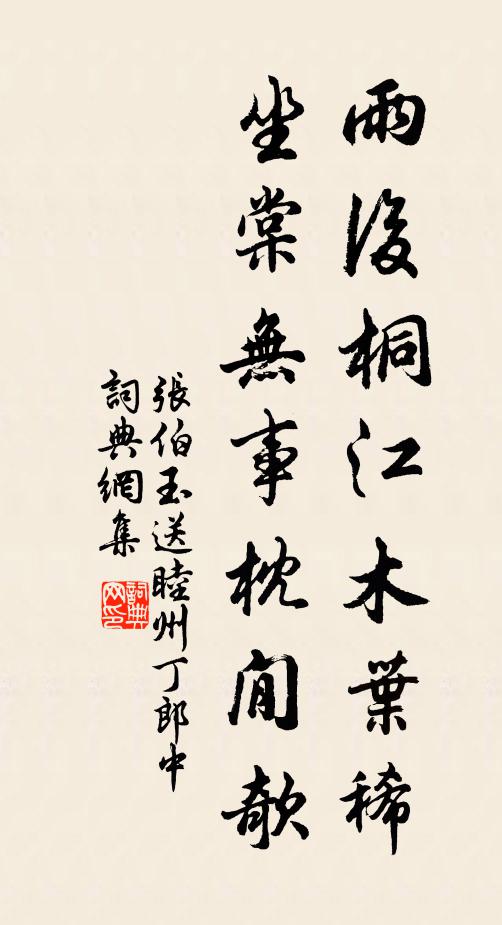 雨後桐江木葉稀
坐棠無事枕閒欹
張伯玉送睦州丁郎中
詞典網集
詞典網印